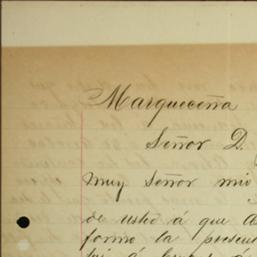 Marqueceña
Señor D.
Muy Señor mio
de usted á que A
formo la presen